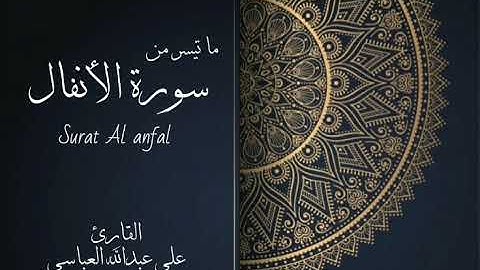 ما تيسر من
سورة الأنفال
Surat Al anfal
القارئ
علي عبدالله العباسي